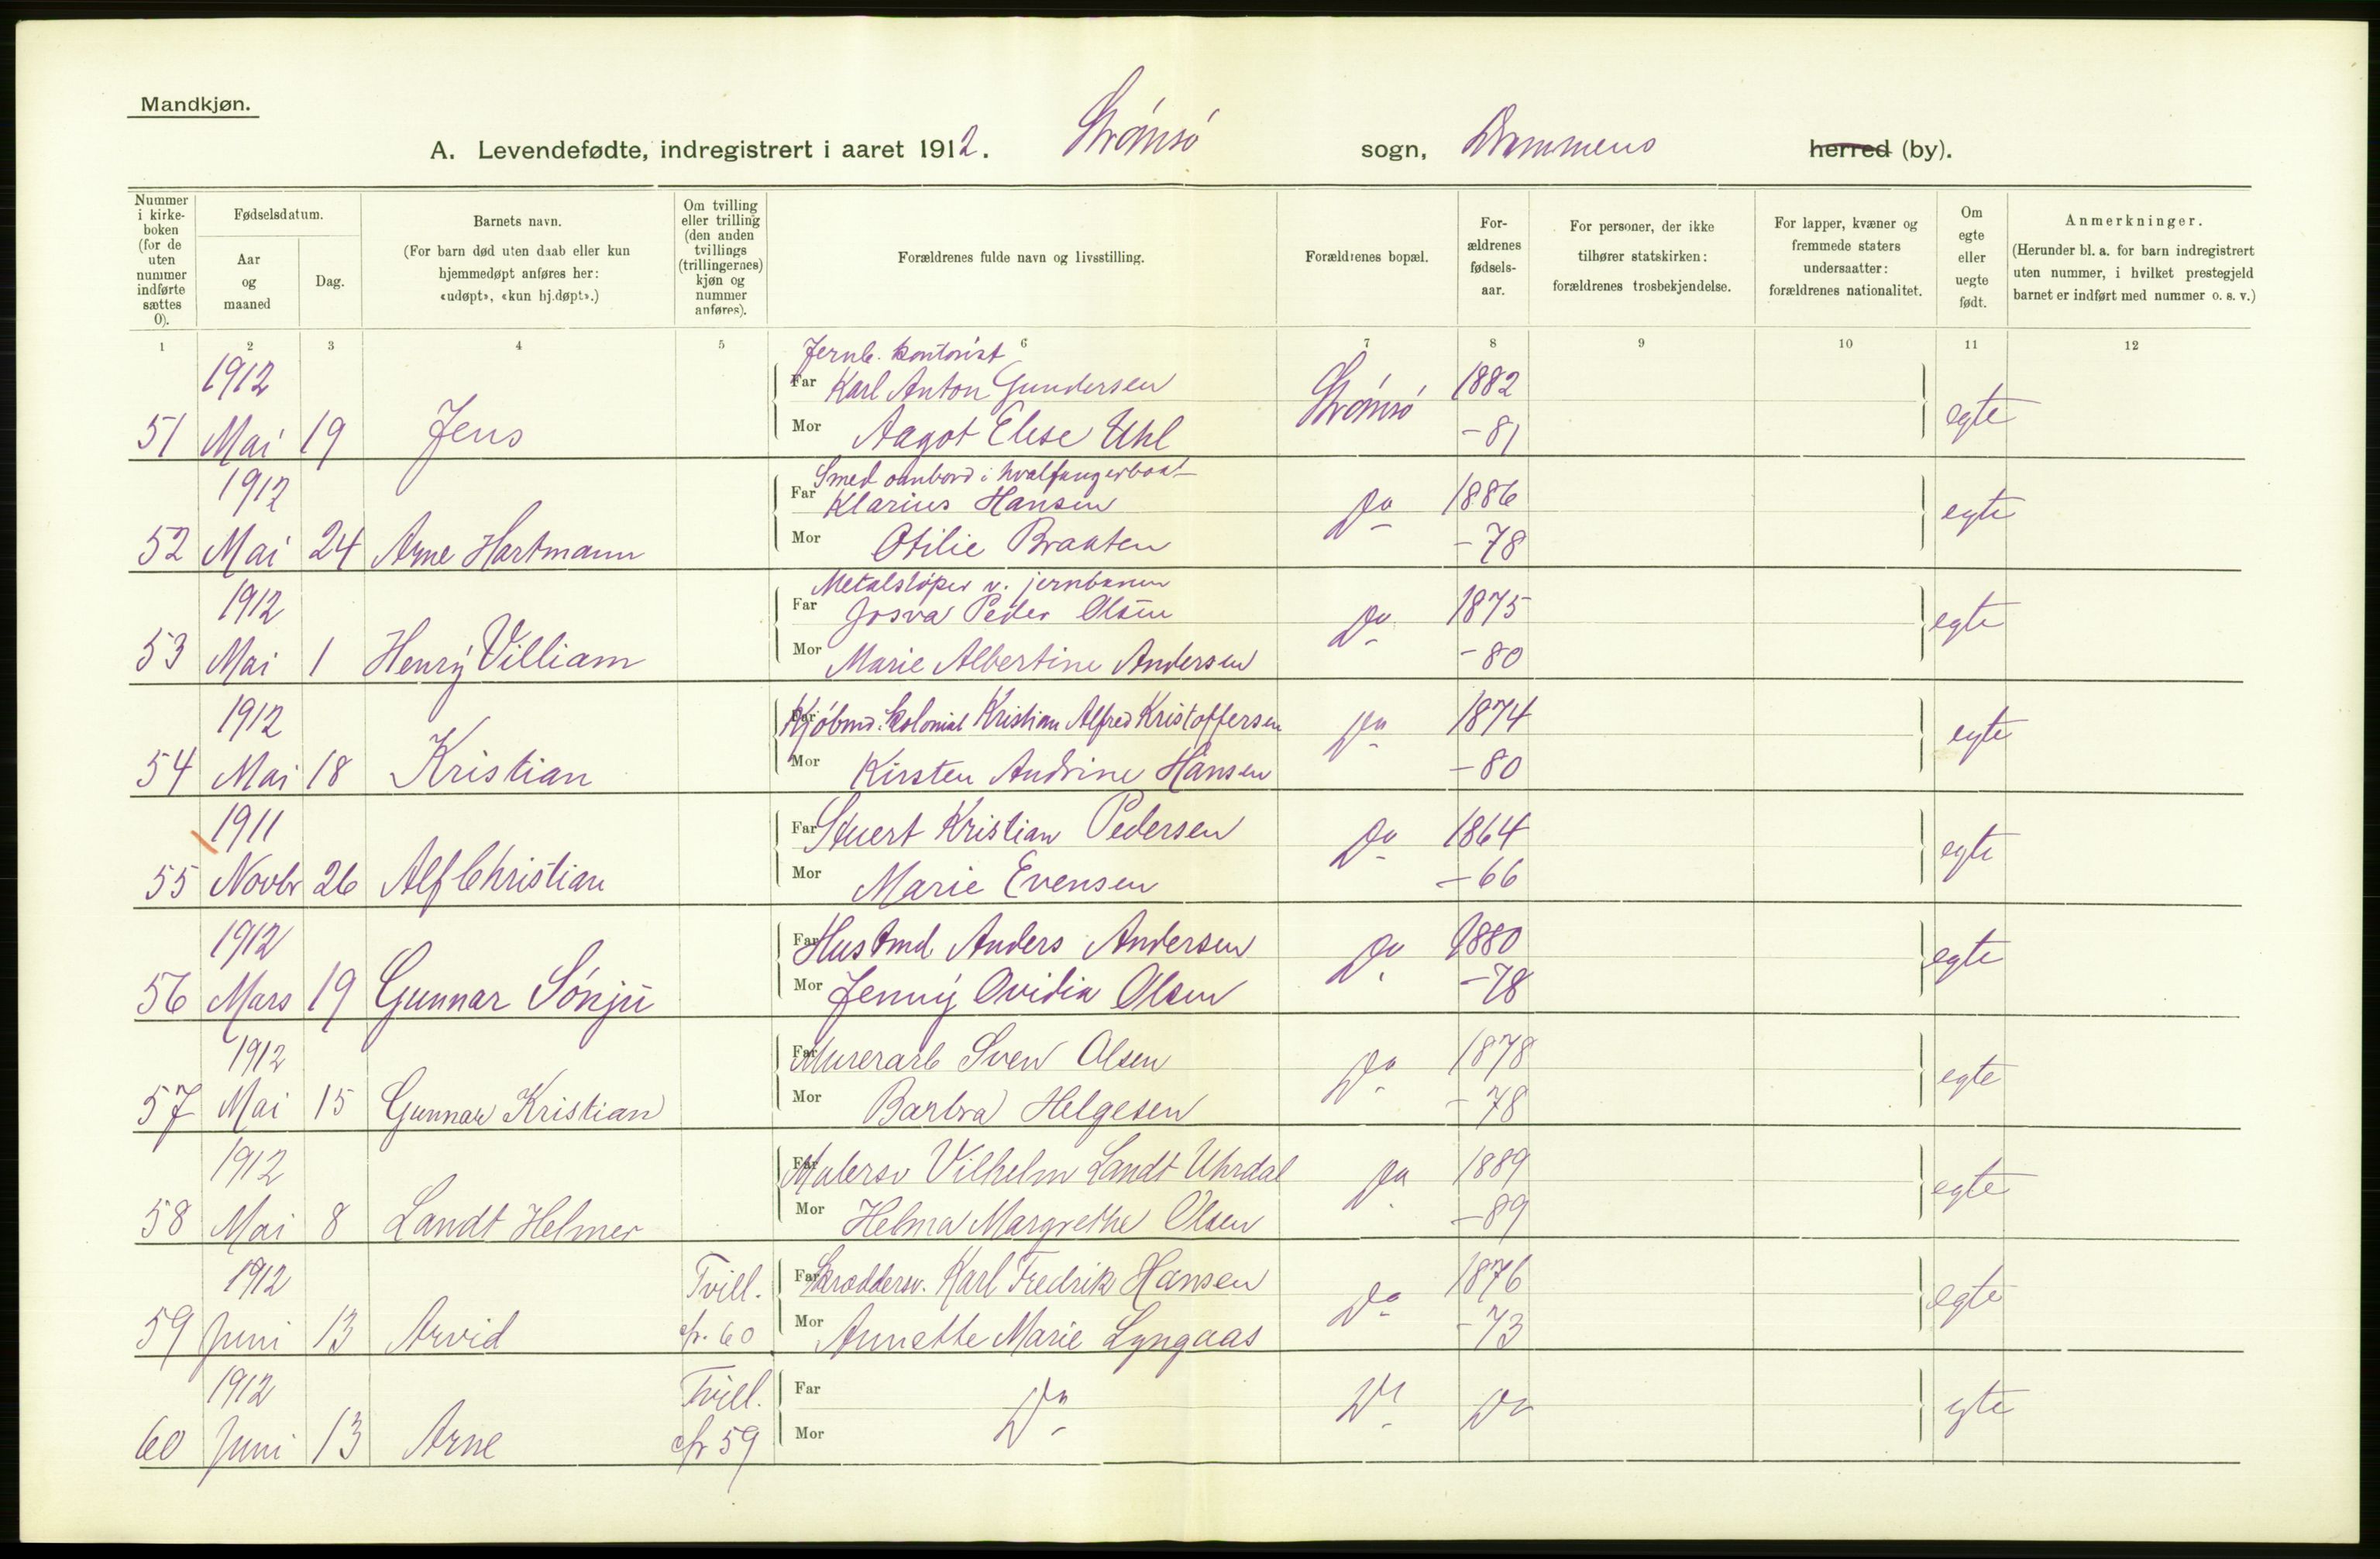 Mandkjøn.
A. Levendefødte, indregistrert i aaret 1912. Strømsø sogn, Drammens herred (by).
Nummer i kirke-boken (for de uten nummer indførte sættes 0).
Fødselsdatum.
Aar og maaned
Dag.
Barnets navn.
(For barn død uten daab eller kun hjemmedøpt anføres her: «udøpt», «kun hj.døpt».)
Om tvilling eller trilling (den anden tvillings (trillingernes) kjøn og nummer anføres).
Forældrenes fulde navn og livsstilling.
Forældrenes bopæl.
For-ældrenes fødsels-aar.
For personer, der ikke tilhører statskirken: forældrenes trosbekjendelse.
For lapper, kvæner og fremmede staters undersaatter: forældrenes nationalitet.
Om egte eller uegte født.
Anmerkninger.
(Herunder bl. a. for barn indregistrert uten nummer, i hvilket prestegjeld barnet er indført med nummer o. s. v.)
1 2 3 4 5 6 7 8 9 10 11 12
Jernb. kontorist
1912 Far Karl Anton Gundersen Strømsø 1882
51 Mai 19 Jens Mor Aagot Elise Uhl -81 egte
Smed ombord i hvalfangerbaat
1912 Far Klarius Hansen Do 1886
52 Mai 24 Arne Hartmann Mor Otilie Braaten -78 egte
Metalstøper v. jernbanen
1912 Far Josva Peder Olsen Do 1875
53 Mai 1 Henry Villiam Mor Marie Albertine Andersen -80 egte
1912 Far Kjøbmd. kolonial Kristian Alfred Kristoffersen Do 1874
54 Mai 18 Kristian Mor Kirsten Andrine Hansen -80 egte
1911 Far Stuert Kristian Pedersen Do 1864
55 Novbr 26 Alf Christian Mor Marie Evensen -66 egte
1912 Far Hustmd Anders Andersen Do 1880
56 Mars 19 Gunnar Sønju Mor Jenny Ovidia Olsen -78 egte
1912 Far Murerarb Sven Olsen Do 1878
57 Mai 15 Gunnar Kristian Mor Barbra Helgesen -78 egte
1912 Far Malersv Vilhelm Landt Uhrdal Do 1889
58 Mai 8 Landt Helmer Mor Helma Margrethe Olsen -89 egte
1912 Tvill. Far Skræddersv. Karl Fredrik Hansen Do 1876
59 Juni 13 Arvid cfr. 60 Mor Annette Marie Lyngaas -73 egte
1912 Tvill. Far Do Do Do
60 Juni 13 Arne cfr 59 Mor egte